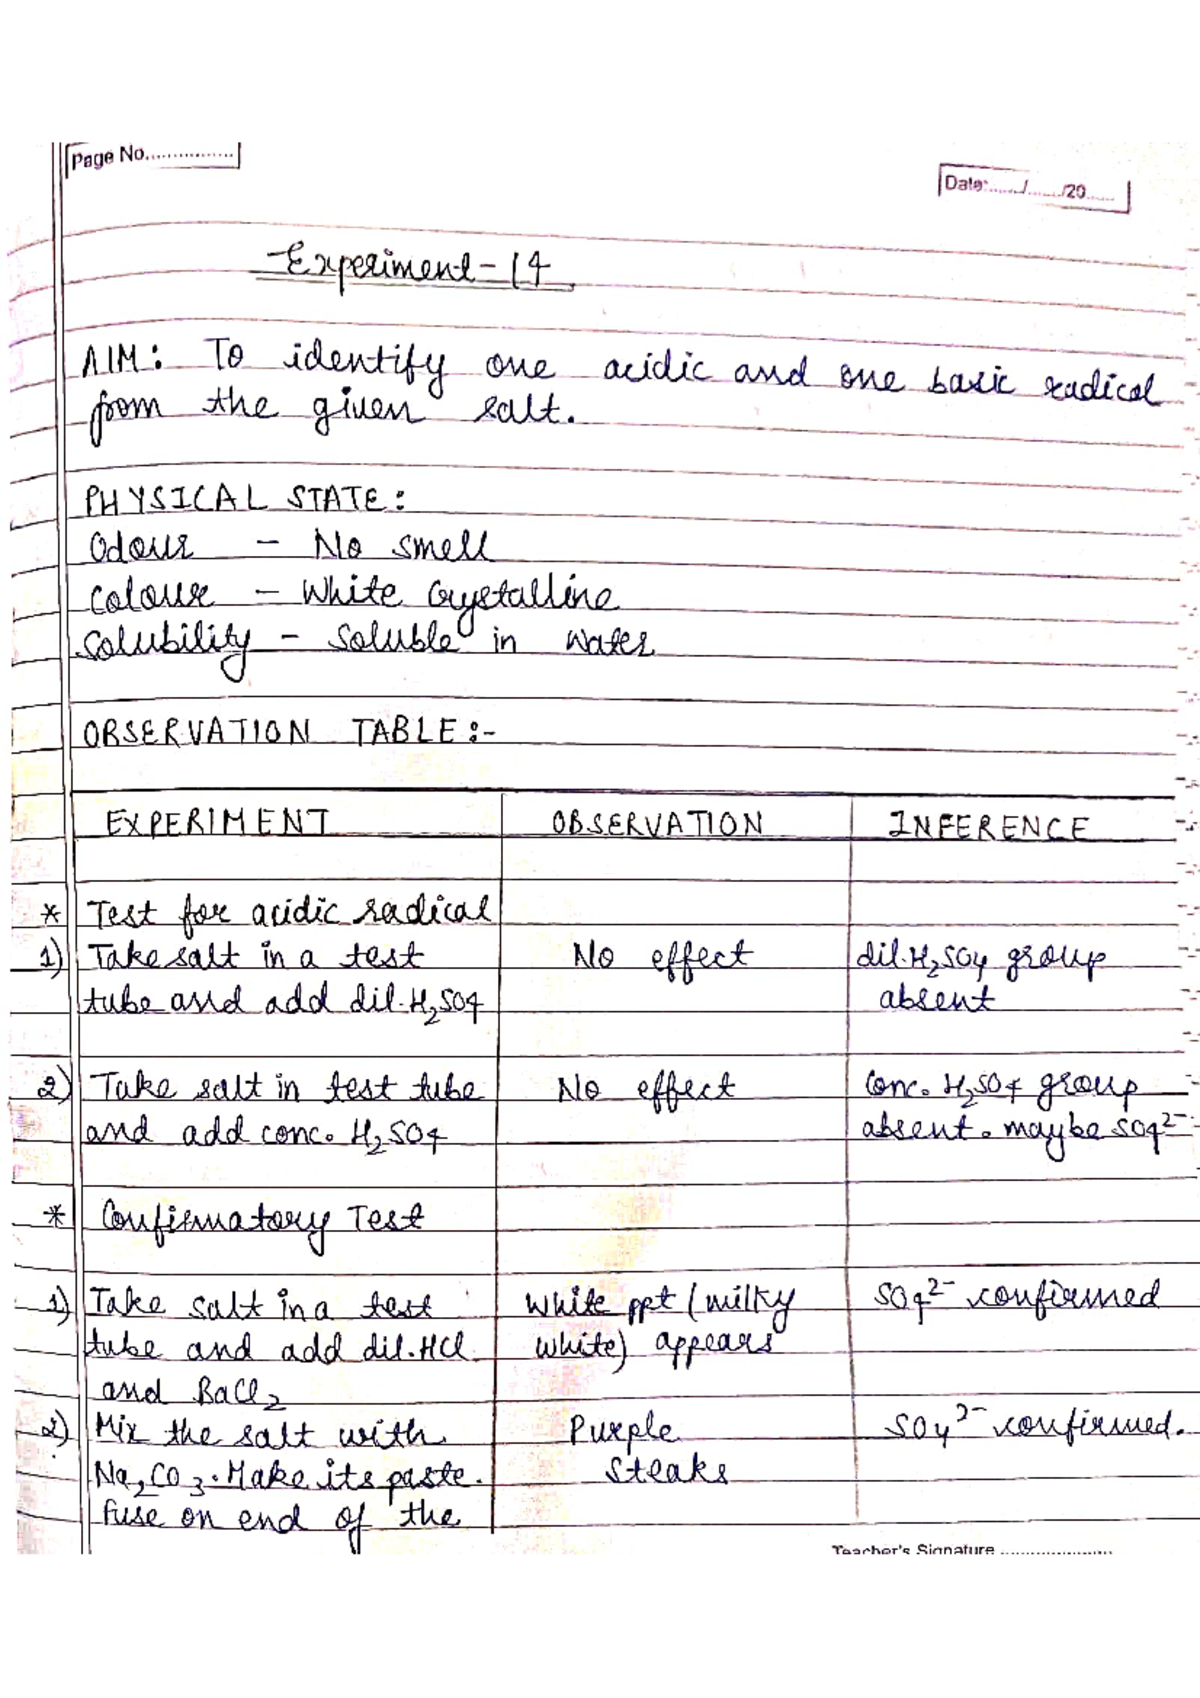 Page No.................
Date:....../......./20......
Experiment-14
AIM: To identify one acidic and one basic radical
from the given salt.
PHYSICAL STATE:
Odour - No smell
Colour - White Crystalline
Solubility - Soluble in Water
OBSERVATION TABLE:-
EXPERIMENT OBSERVATION INFERENCE
* Test for acidic radical
1) Take salt in a test No effect dil.H₂SO₄ group
tube and add dil.H₂SO₄ absent
2) Take salt in test tube No effect Conc. H₂SO₄ group
and add conc. H₂SO₄ absent. maybe SO₄²⁻
* Confirmatory Test
1) Take salt in a test White ppt (milky SO₄²⁻ confirmed
tube and add dil.HCl white) appears
and BaCl₂
2) Mix the salt with Purple SO₄²⁻ confirmed.
Na₂CO₃. Make its paste. Steaks
fuse on end of the
Teacher's Signature ......................